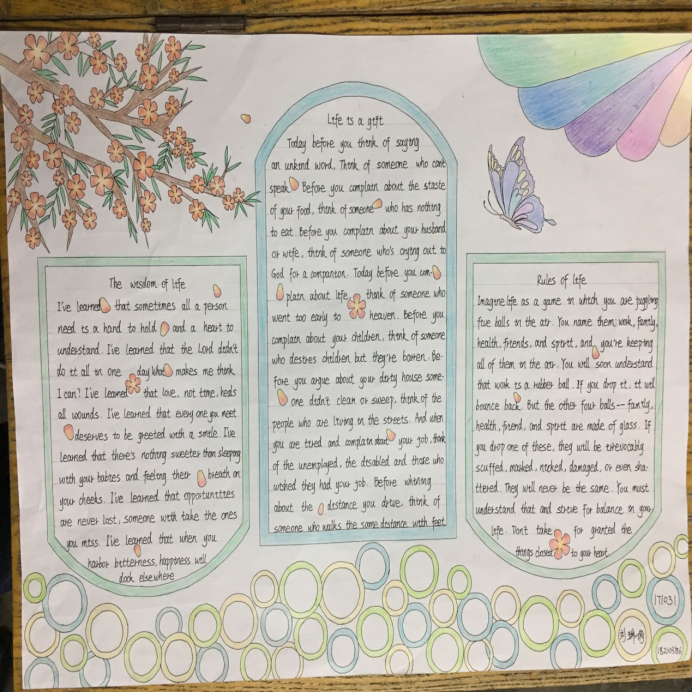 The wisdom of life
I've learned that sometimes all a person
need is a hand to hold and a heart to
understand. I've learned that the Lord didn't
do it all in one day. What makes me think
I can? I've learned that love, not time, heals
all wounds. I've learned that every one you meet
deserves to be greeted with a smile. I've
learned that there's nothing sweeter than sleeping
with your babies and feeling their breath on
your cheeks. I've learned that opportunities
are never lost, someone with take the ones
you miss. I've learned that when you
harbor bitterness, happiness well
dock elsewhere
Life is a gift
Today before you think of saying
an unkind word, Think of someone who can't
speak. Before you complain about the staste
of your food, think of someone who has nothing
to eat. Before you complain about your husband
or wife, think of someone who's crying out to
God for a companion. Today before you com-
plain about life think of someone who
went too early to heaven. Before you
complain about your children, think of someone
who desires children but they're barren. Be-
fore you argue about your dirty house some-
one didn't clean or sweep, think of the
people who are living in the streets. And when
you are tired and complain about your job, think
of the unemployed, the disabled and those who
wished they had your job. Before whining
about the distance you drive, think of
someone who walks the same distance with feet
Rules of life
Imagine life as a game in which you are juggling
five balls in the air. You name them, work, family,
health, friends, and spirit, and you're keeping
all of them in the air. You will soon understand
that work is a rubber ball. If you drop it, it will
bounce back. But the other four balls -- family,
health, friend, and spirit are made of glass. If
you drop one of these, they will be irrevocably
scuffed, masked, nicked, damaged, or even sha-
ttered. They will never be the same. You must
understand that and strive for balance in your
life. Don't take for granted the
things closest to your heart
171031